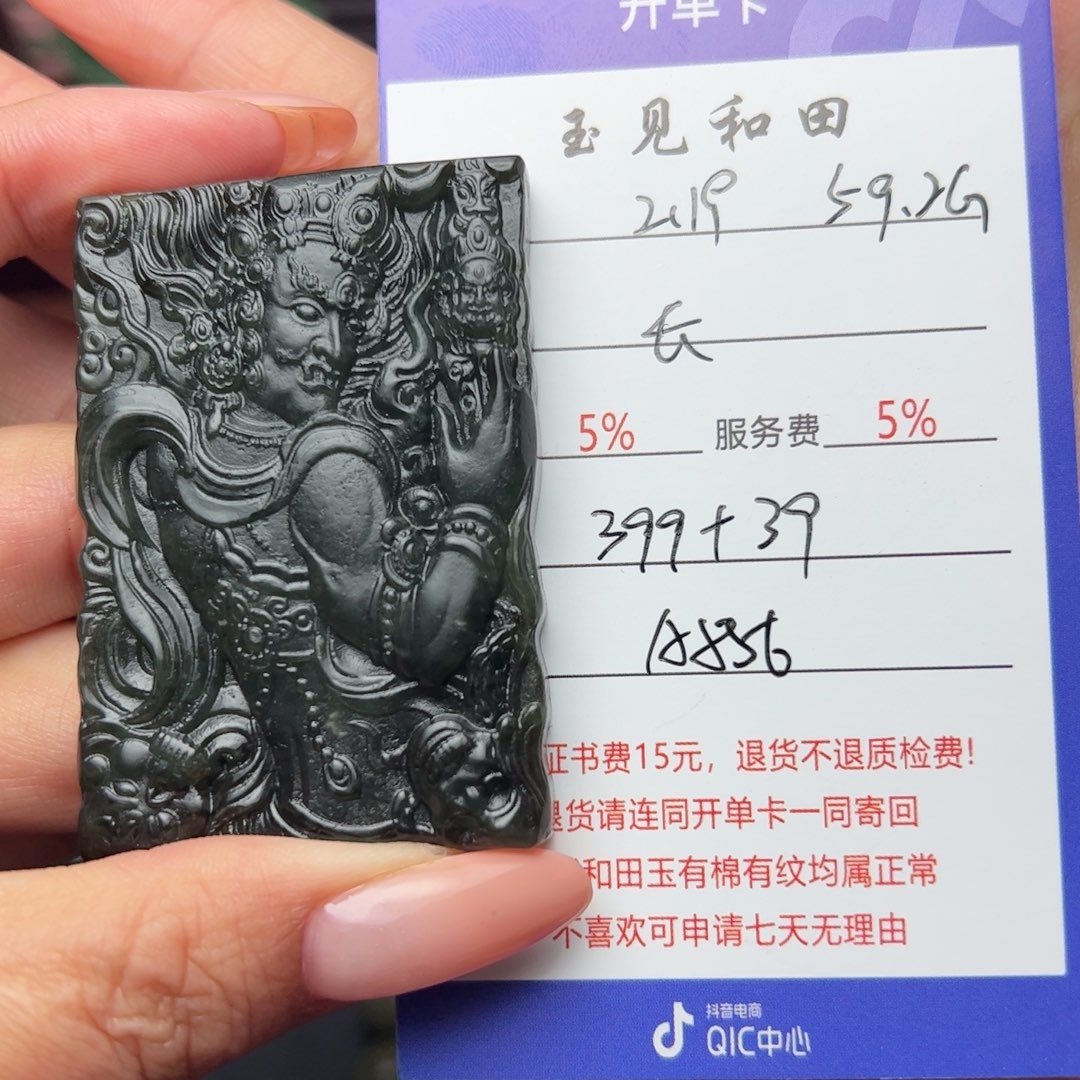 开单卡
玉见和田
2.19 59.2G
长
5% 服务费 5%
399+39
证书费15元，退货不退质检费！
退货请连同开单卡一同寄回
和田玉有棉有纹均属正常
不喜欢可申请七天无理由
抖音电商
QIC中心